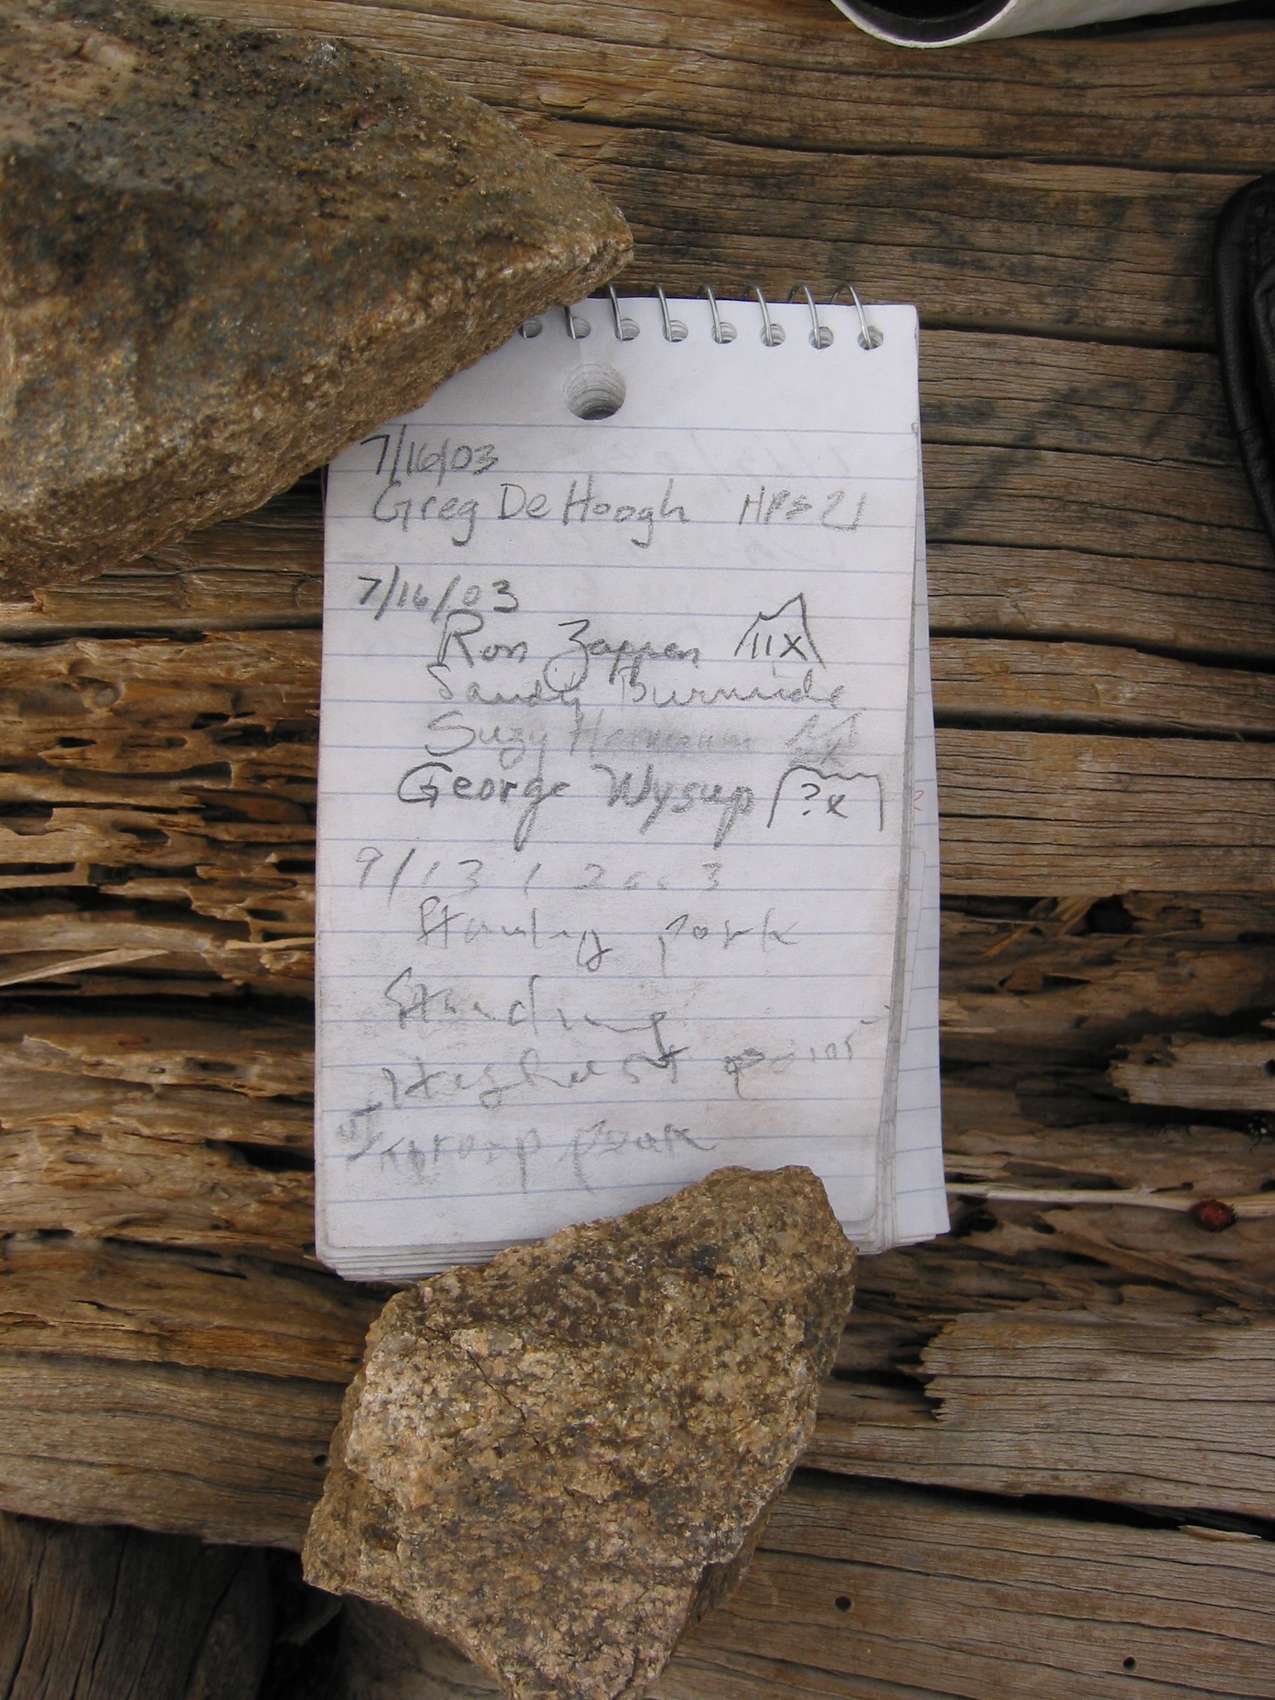 7/16/03
Greg DeHoogh HPS 21
7/16/03
Ron Zappen 11x
Sandy Burnside
Suzy Hermann
George Wysup ?x
9/13/2003
peak
Standing
Highest point
group peak